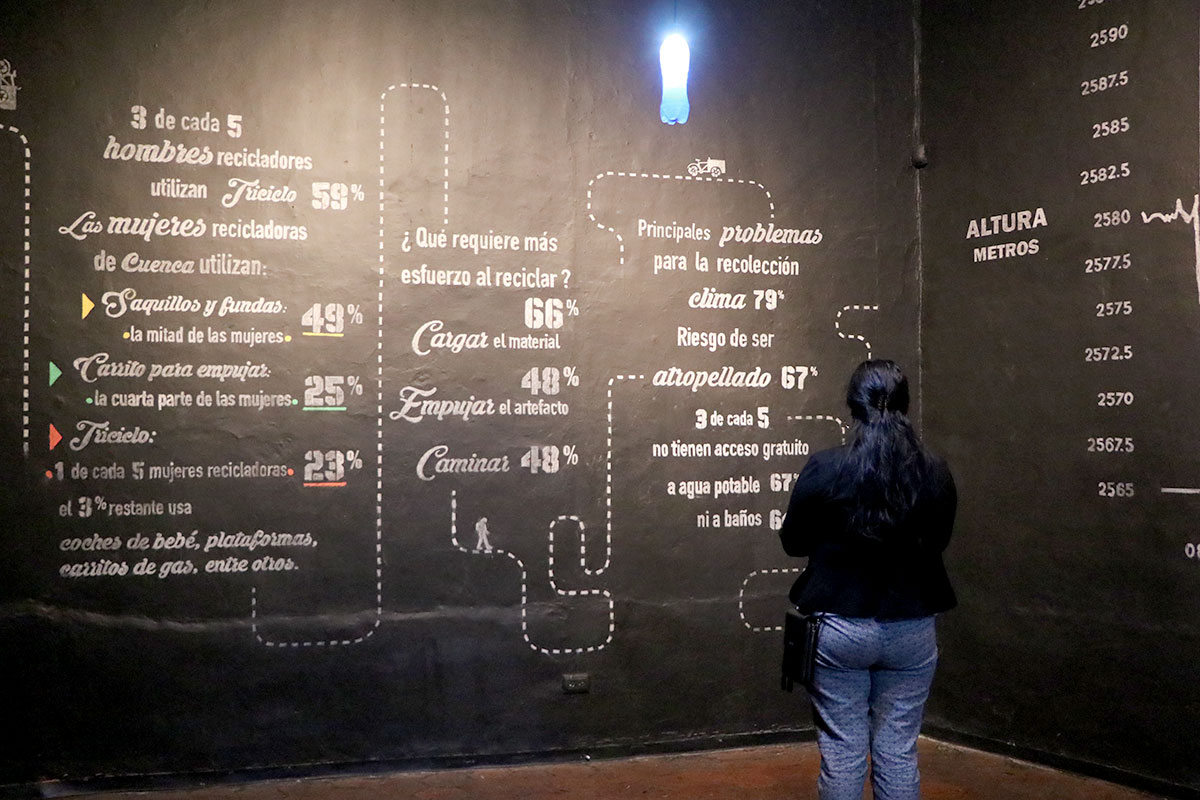 3 de cada 5
hombres recicladores
utilizan Triciclo 59%
Las mujeres recicladoras
de Cuenca utilizan:
Saquillos y fundas:
la mitad de las mujeres
49%
Carrito para empujar:
la cuarta parte de las mujeres
25%
Triciclo:
1 de cada 5 mujeres recicladoras
23%
el 3% restante usa
coches de bebé, plataformas,
carritos de gas, entre otros.
¿Qué requiere más
esfuerzo al reciclar?
66%
Cargar el material
48%
Empujar el artefacto
Caminar 48%
Principales problemas
para la recolección
clima 79%
Riesgo de ser
atropellado 67%
3 de cada 5
no tienen acceso gratuito
a agua potable 67
ni a baños
ALTURA
METROS
2590
2587.5
2585
2582.5
2580
2577.5
2575
2572.5
2570
2567.5
2565